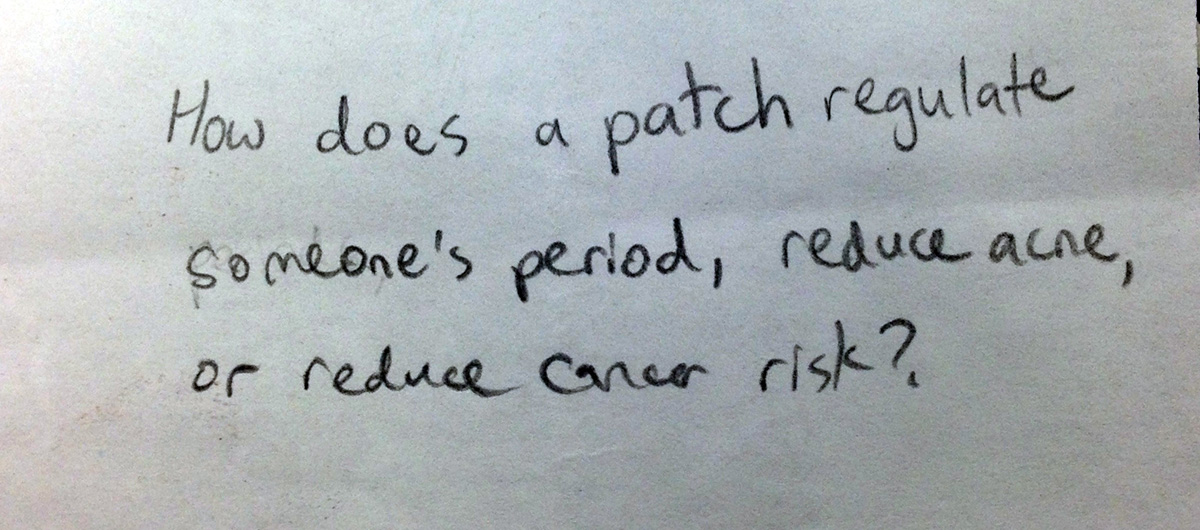 How does a patch regulate
someone's period, reduce acne,
or reduce cancer risk?